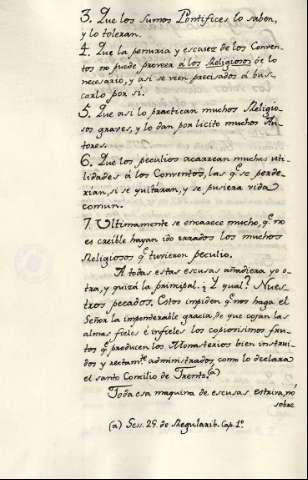 3. Que los Sumos Pontifices lo saben,
y lo toleran.
4. Que la penuria y escasez de los Conven-
tos no puede proveer á los Religiosos de lo
necesario, y asi se veen precisados á bus-
carlo por sí.
5. Que asi lo practican muchos Religio-
sos graves, y lo dan por licito muchos Au-
tores.
6. Que los peculios acarrean muchas uti-
lidades á los Conventos, las q.e se perde-
rían, si se quitáran, y se pusiera vida
comun.
7. Ultimamente se encarece mucho, q.e no
es creible hayan ido errados los muchos
Religiosos q.e tuvieron peculio.
A todas estas escusas añadiera yo o-
tra, y quizá la principal. ¿Y qual? Nues-
tros pecados. Estos impiden q.e nos haga el
Señor la imponderable gracia, de que cojan las
almas fieles é infieles los copiosisimos fru-
tos q.e producen los Monasterios bien instrui-
dos y rectam.te administrados como lo declara
el santo Concilio de Trento. (a)
Toda esa maquina de escusas estriva, nó
sobre
(a) Ses. 25. de Regularib. Cap. 1.º